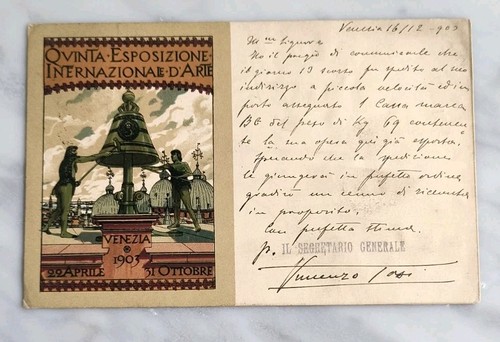 QVINTA · ESPOSIZIONE
INTERNAZIONALE · D'ARTE
5
VENEZIA
1903
22 APRILE 31 OTTOBRE
Venezia 16/12 - 903
Ill.ma Signora
Ho il pregio di comunicarle che
il giorno 13 scorso fu spedito al suo
indirizzo a piccola velocità ed in
porto assegnato 1 Cassa marca
BC del peso di Kg 69 contenen
te la sua opera qui già esposta.
Sperando che la spedizione
le giungerà in perfetto ordine
gradirò un cenno di ricevuta
in proposito.
Con perfetta stima
p. IL SEGRETARIO GENERALE
Vincenzo